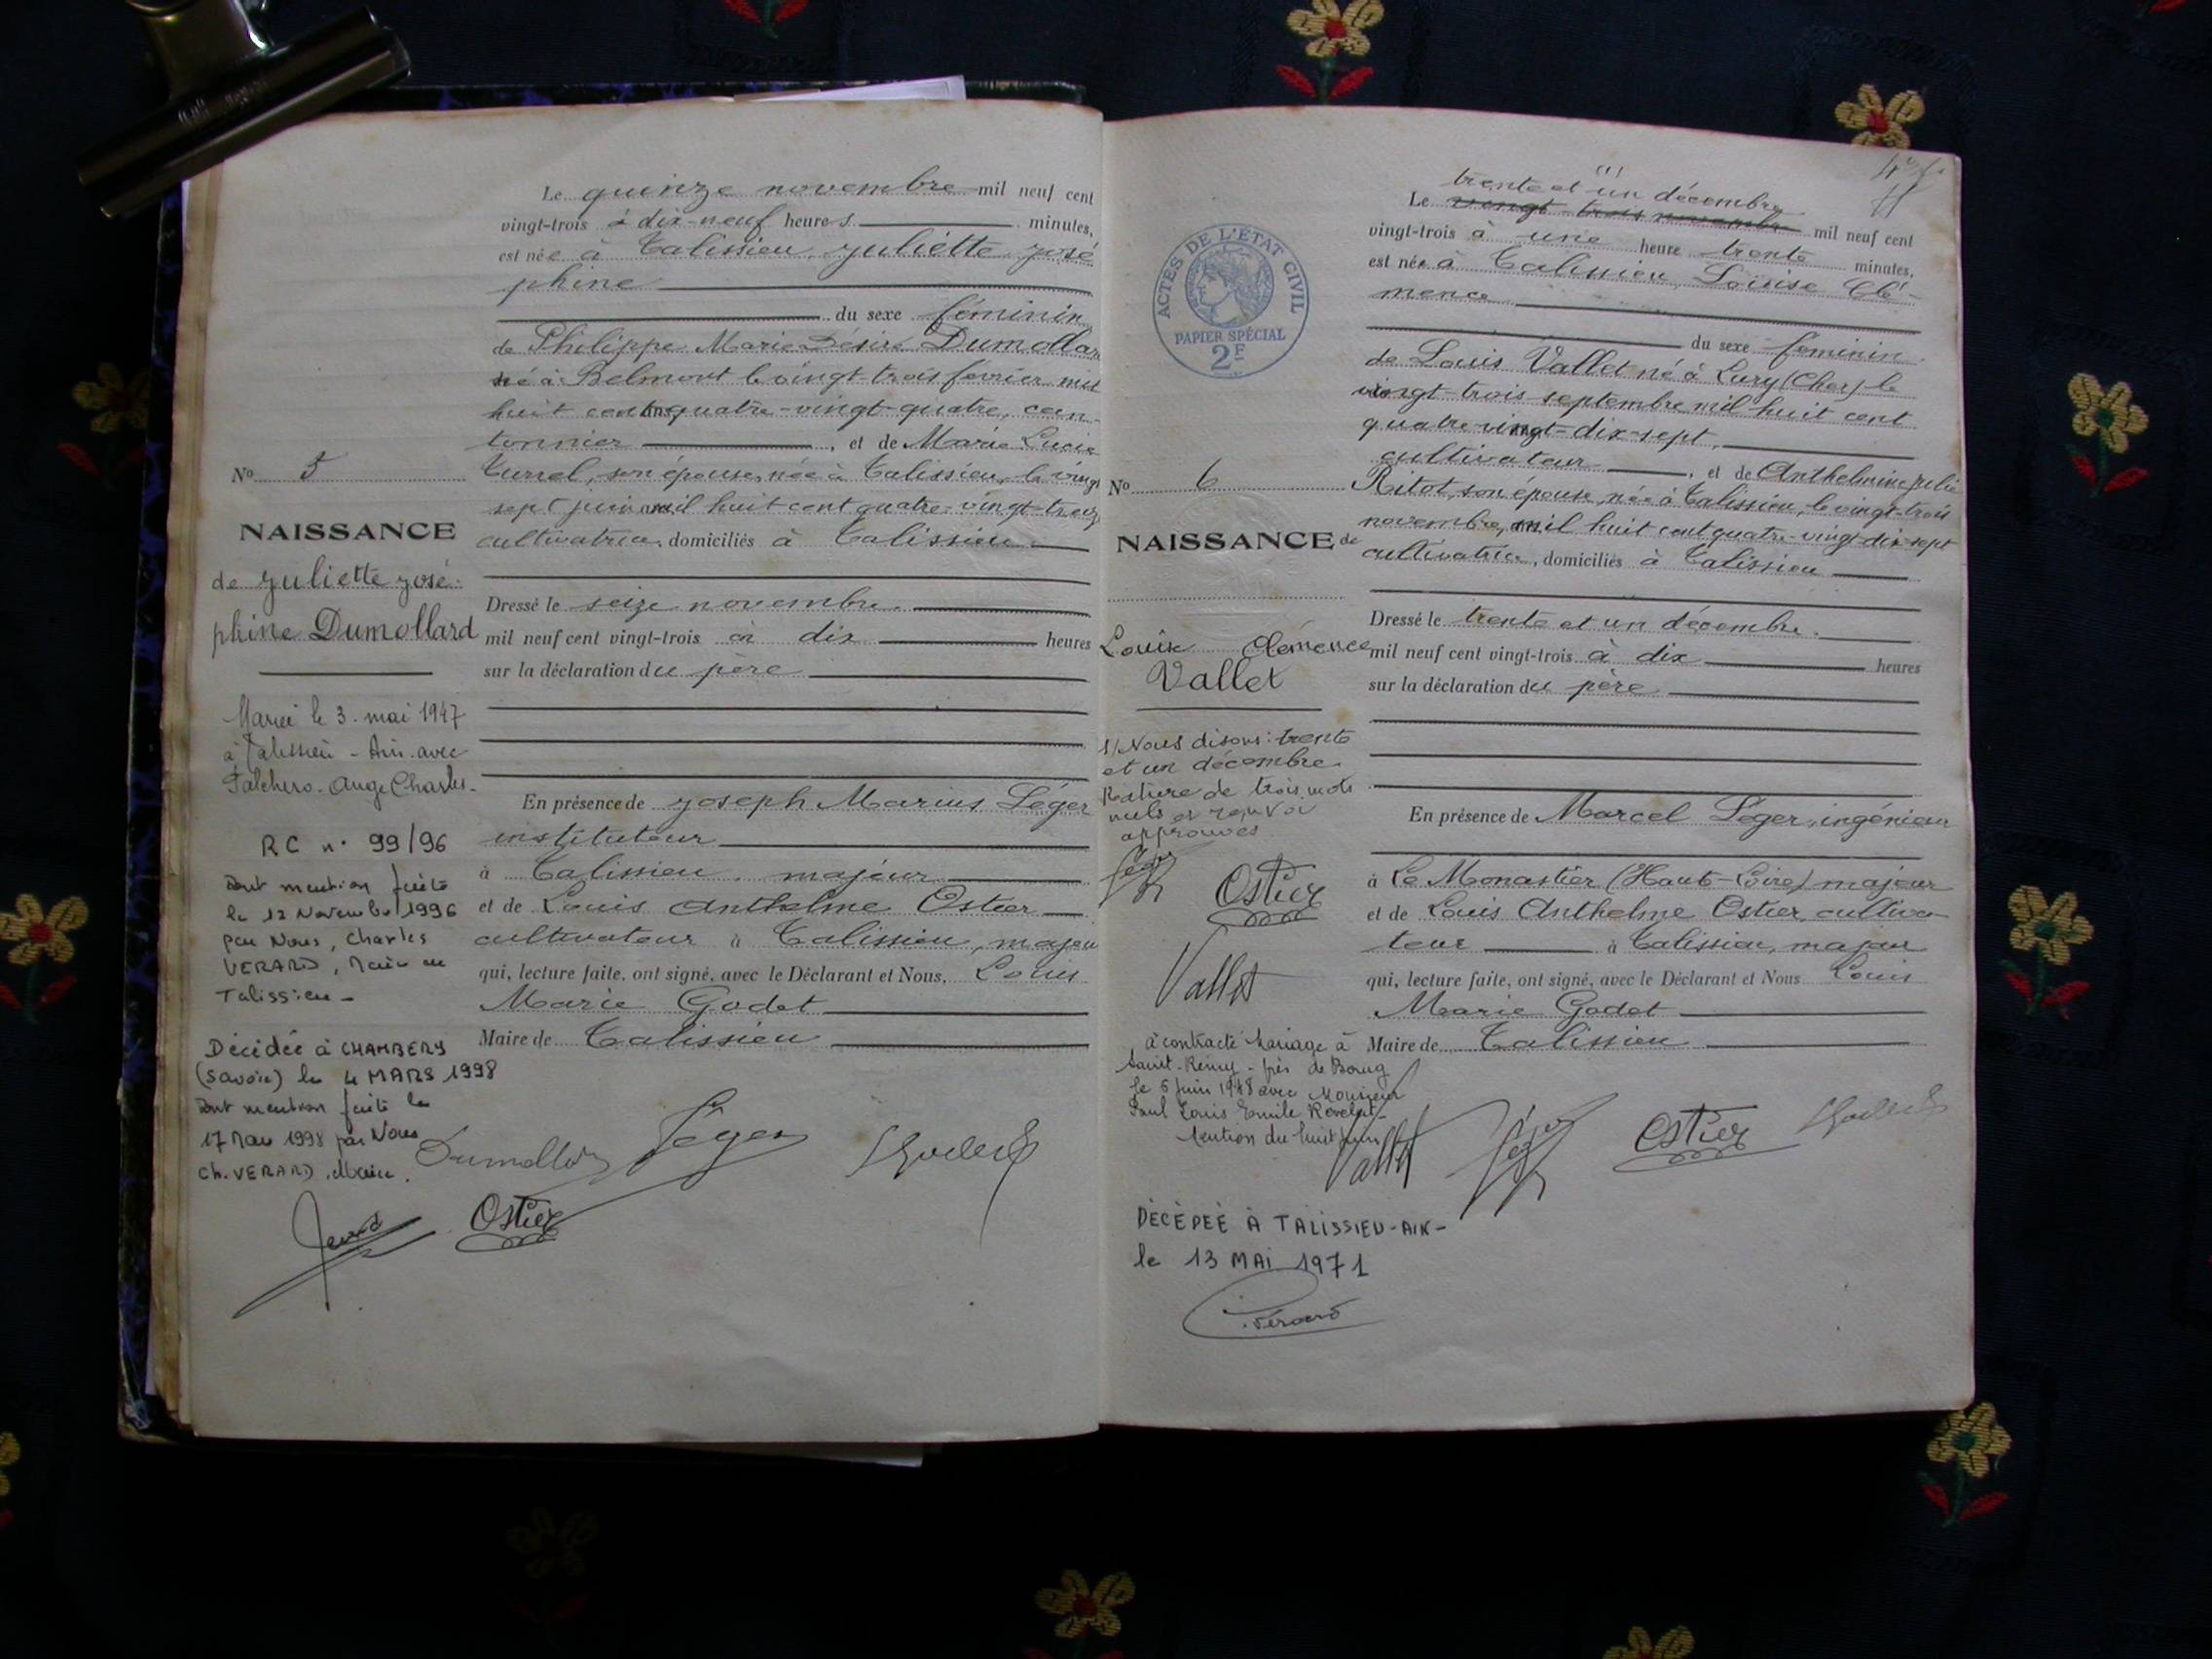 Le quinze novembre mil neuf cent
vingt-trois à dix-neuf heures minutes,
est née à Talissieu, Juliette José
phine
du sexe féminin
de Philippe Marie Désiré Dumollar
né à Belmont le vingt-trois février mil
huit cent quatre-vingt-quatre, can-
tonnier, et de Marie Lucie
Turrel, son épouse, née à Talissieu, le vingt
sept juin mil huit cent quatre-vingt-treize
cultivatrice, domiciliés à Talissieu
Dressé le seize novembre
mil neuf cent vingt-trois à dix heures
sur la déclaration du père
En présence de Joseph Marius Léger
instituteur
à Talissieu, majeur
et de Louis Anthelme Ostier
cultivateur à Talissieu, majeu
qui, lecture faite, ont signé, avec le Déclarant et Nous, Louis
Marie Godet
Maire de Talissieu
Dumollard Léger
Ostier
No 5
NAISSANCE
de Juliette José-
phine Dumollard
Mariée le 3. mai 1947
à Talissieu - Ain. avec
Falchero. Ange Charles.
RC n° 99/96
Dont mention faite
le 12 Novembre 1996
par Nous, Charles
VERARD, Maire de
Talissieu -
Décédée à CHAMBERY
(Savoie) le 4 MARS 1998
Dont mention faite le
17 Mars 1998 par Nous
Ch. VERARD, Maire.
ACTES DE L'ÉTAT CIVIL
PAPIER SPÉCIAL
2F
(1)
trente et un décembre
Le vingt-trois novembre mil neuf cent
vingt-trois à une heure trente minutes,
est née à Talissieu, Louise Clé-
mence
du sexe féminin
de Louis Vallet né à Lury (Cher) le
vingt-trois septembre mil huit cent
quatre vingt-dix-sept,
cultivateur, et de Anthelmine Julie
Ritot, son épouse, née à Talissieu, le vingt-trois
novembre, mil huit cent quatre-vingt-dix-sept
cultivatrice, domiciliés à Talissieu
Dressé le trente et un décembre.
mil neuf cent vingt-trois à dix heures
sur la déclaration du père
En présence de Marcel Léger, ingénieur
à Le Monastier (Haute-Loire) majeur
et de Louis Anthelme Ostier, cultiva-
teur à Talissieu, majeur
qui, lecture faite, ont signé, avec le Déclarant et Nous Louis
Marie Godet
Maire de Talissieu
Vallet Léger Ostier
No 6
NAISSANCE de
Louise Clémence
Vallet
1/ Nous disons: trente
et un décembre.
Rature de trois mots
nuls et renvoi
approuvés
Léger Ostier
Vallet
à contracté mariage à
Saint-Rémy - près de Bourg
le 5 juin 1948 avec Monsieur
Paul Louis Emile Revelat-
Mention du huit juin
DÉCÉDÉE À TALISSIEU-AIN-
le 13 MAI 1971
Vérard